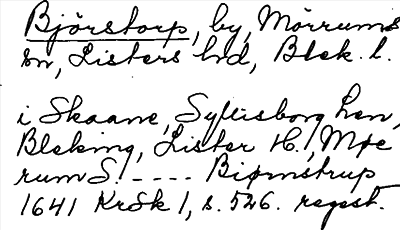 Björstorp, by, Mörrums
sn, Listers hd, Blek. l.
i Skaane, Sylluisborg Len,
Bleking, Lister H., Mør
rum S. - - - - Biørnstrup
1641 KrSk 1, s. 526. regest.